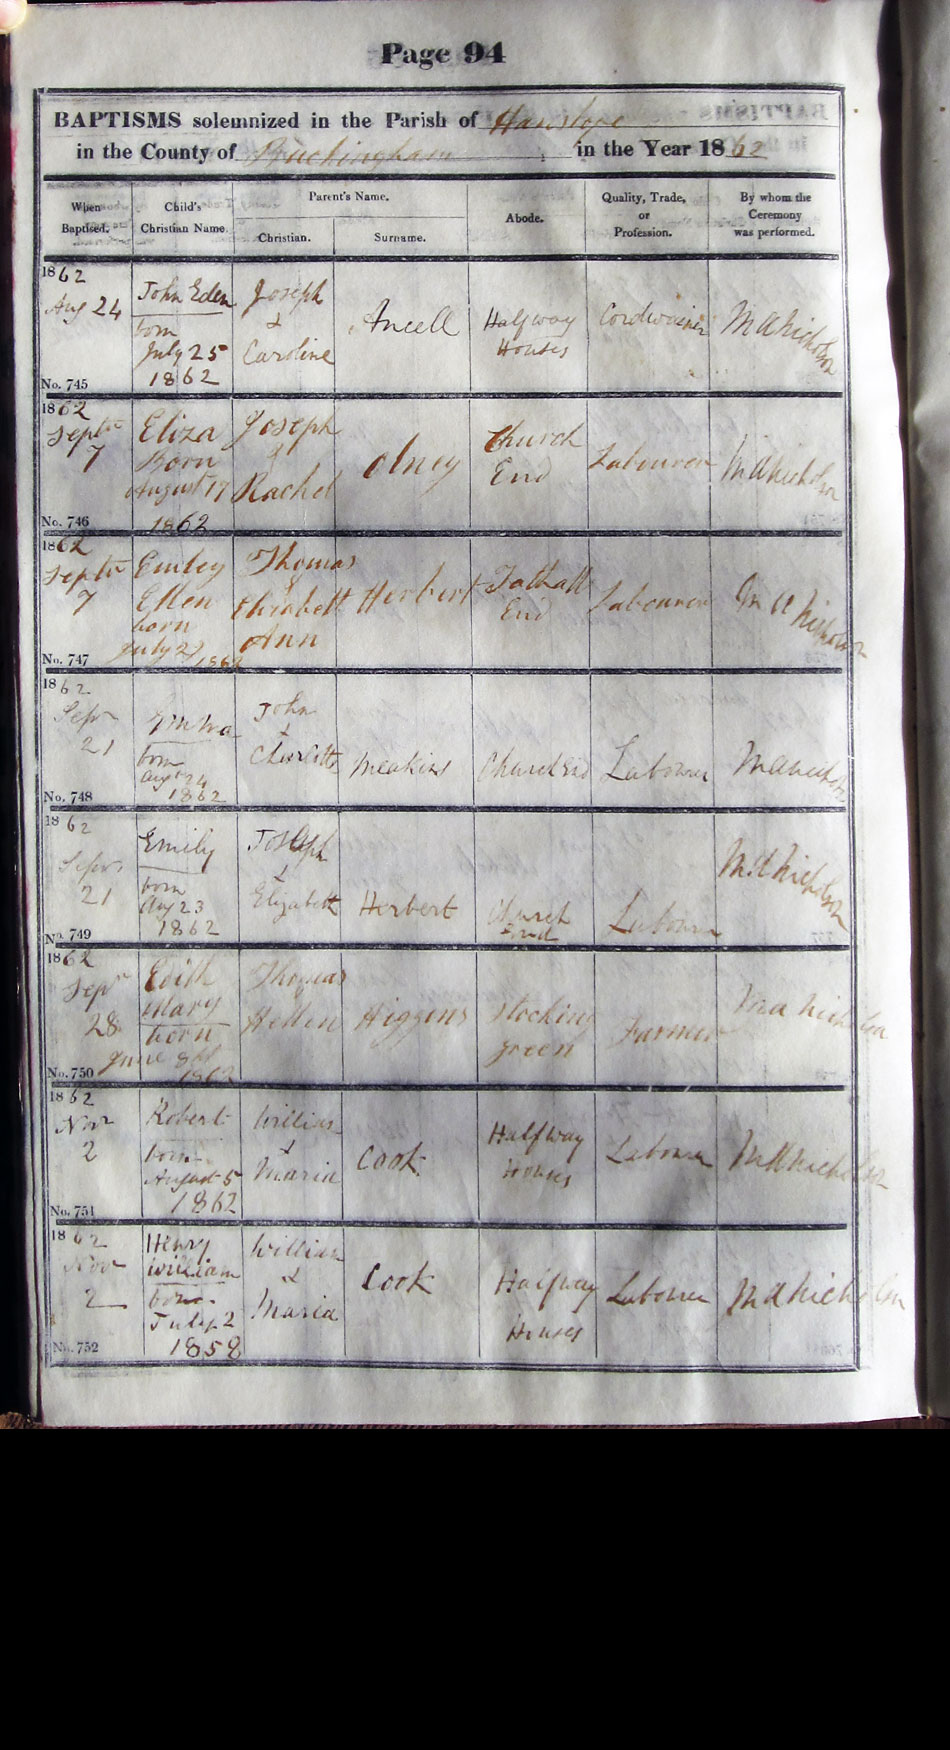 Page 94
BAPTISMS solemnized in the Parish of Hanslope
in the County of Buckingham in the Year 1862
When Baptised. Child's Christian Name. Parent's Name. Christian. Surname. Abode. Quality, Trade, or Profession. By whom the Ceremony was performed.
1862
Aug 24
No. 745
John Eden
born
July 25
1862
Joseph
&
Caroline
Ancell
Halfway
Houses
Cordwainer
M A Nicholson
1862
Septr
7
No. 746
Eliza
Born
August 17
1862
Joseph
&
Rachel
Olney
Church
End
Labourer
M A Nicholson
1862
Septr
7
No. 747
Emley
Ellen
born
July 27 1862
Thomas
&
Elizabett
Ann
Herbert
Tathall
End
Labourer
M A Nicholson
1862
Sepr
21
No. 748
Emma
born
Augst 24
1862
John
&
Charlotte
Meakins
Church End
Labourer
M A Nicholson
1862
Sepr
21
No. 749
Emily
born
Aug 23
1862
Joseph
&
Elizabeth
Herbert
Church
End
Labourer
M A Nicholson
1862
Sepr
28
No. 750
Edith
Mary
born
June
1862
Thomas
Hellen
Higgins
Stocking
green
Farmer
M A Nicholson
1862
Novr
2
No. 751
Robert
born
August 5
1862
William
&
Maria
Cook
Halfway
Houses
Labourer
M A Nicholson
1862
Novr
2
No. 752
Henry
William
born
July 2
1858
William
&
Maria
Cook
Halfway
Houses
Labourer
M A Nicholson